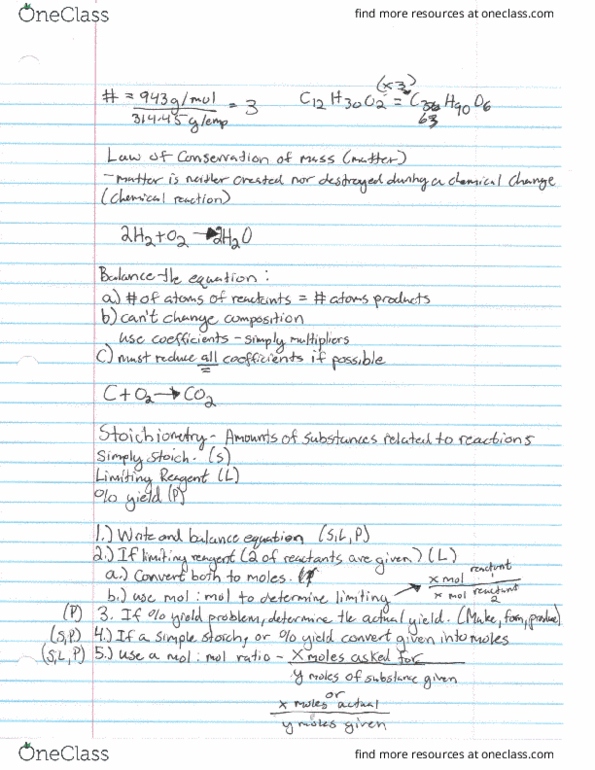 OneClass
find more resources at oneclass.com
# = 943g/mol = 3
314.45 g/emp
(x3)
C12 H30 O2 = C36 H90 O6
63
Law of Conservation of mass (matter)
- matter is neither created nor destroyed during a chemical change
(chemical reaction)
2H2 + O2 → 2H2O
Balance the equation:
a) # of atoms of reactants = # atoms products
b) can't change composition
use coefficients - simply multipliers
c) must reduce all coefficients if possible
C + O2 → CO2
Stoichiometry - Amounts of substances related to reactions
Simply stoich. (S)
Limiting Reagent (L)
% yield (P)
1.) Write and balance equation (S,L,P)
2.) If limiting reagent (2 of reactants are given) (L)
a.) Convert both to moles.
b.) use mol : mol to determine limiting → x mol reactant 1
x mol reactant 2
(P) 3. If % yield problem, determine the actual yield. (Make, form, produce)
(S,P) 4.) If a simple stoich, or % yield convert given into moles
(S,L,P) 5.) use a mol : mol ratio - X moles asked for
y moles of substance given
or
x moles actual
y moles given
OneClass
find more resources at oneclass.com